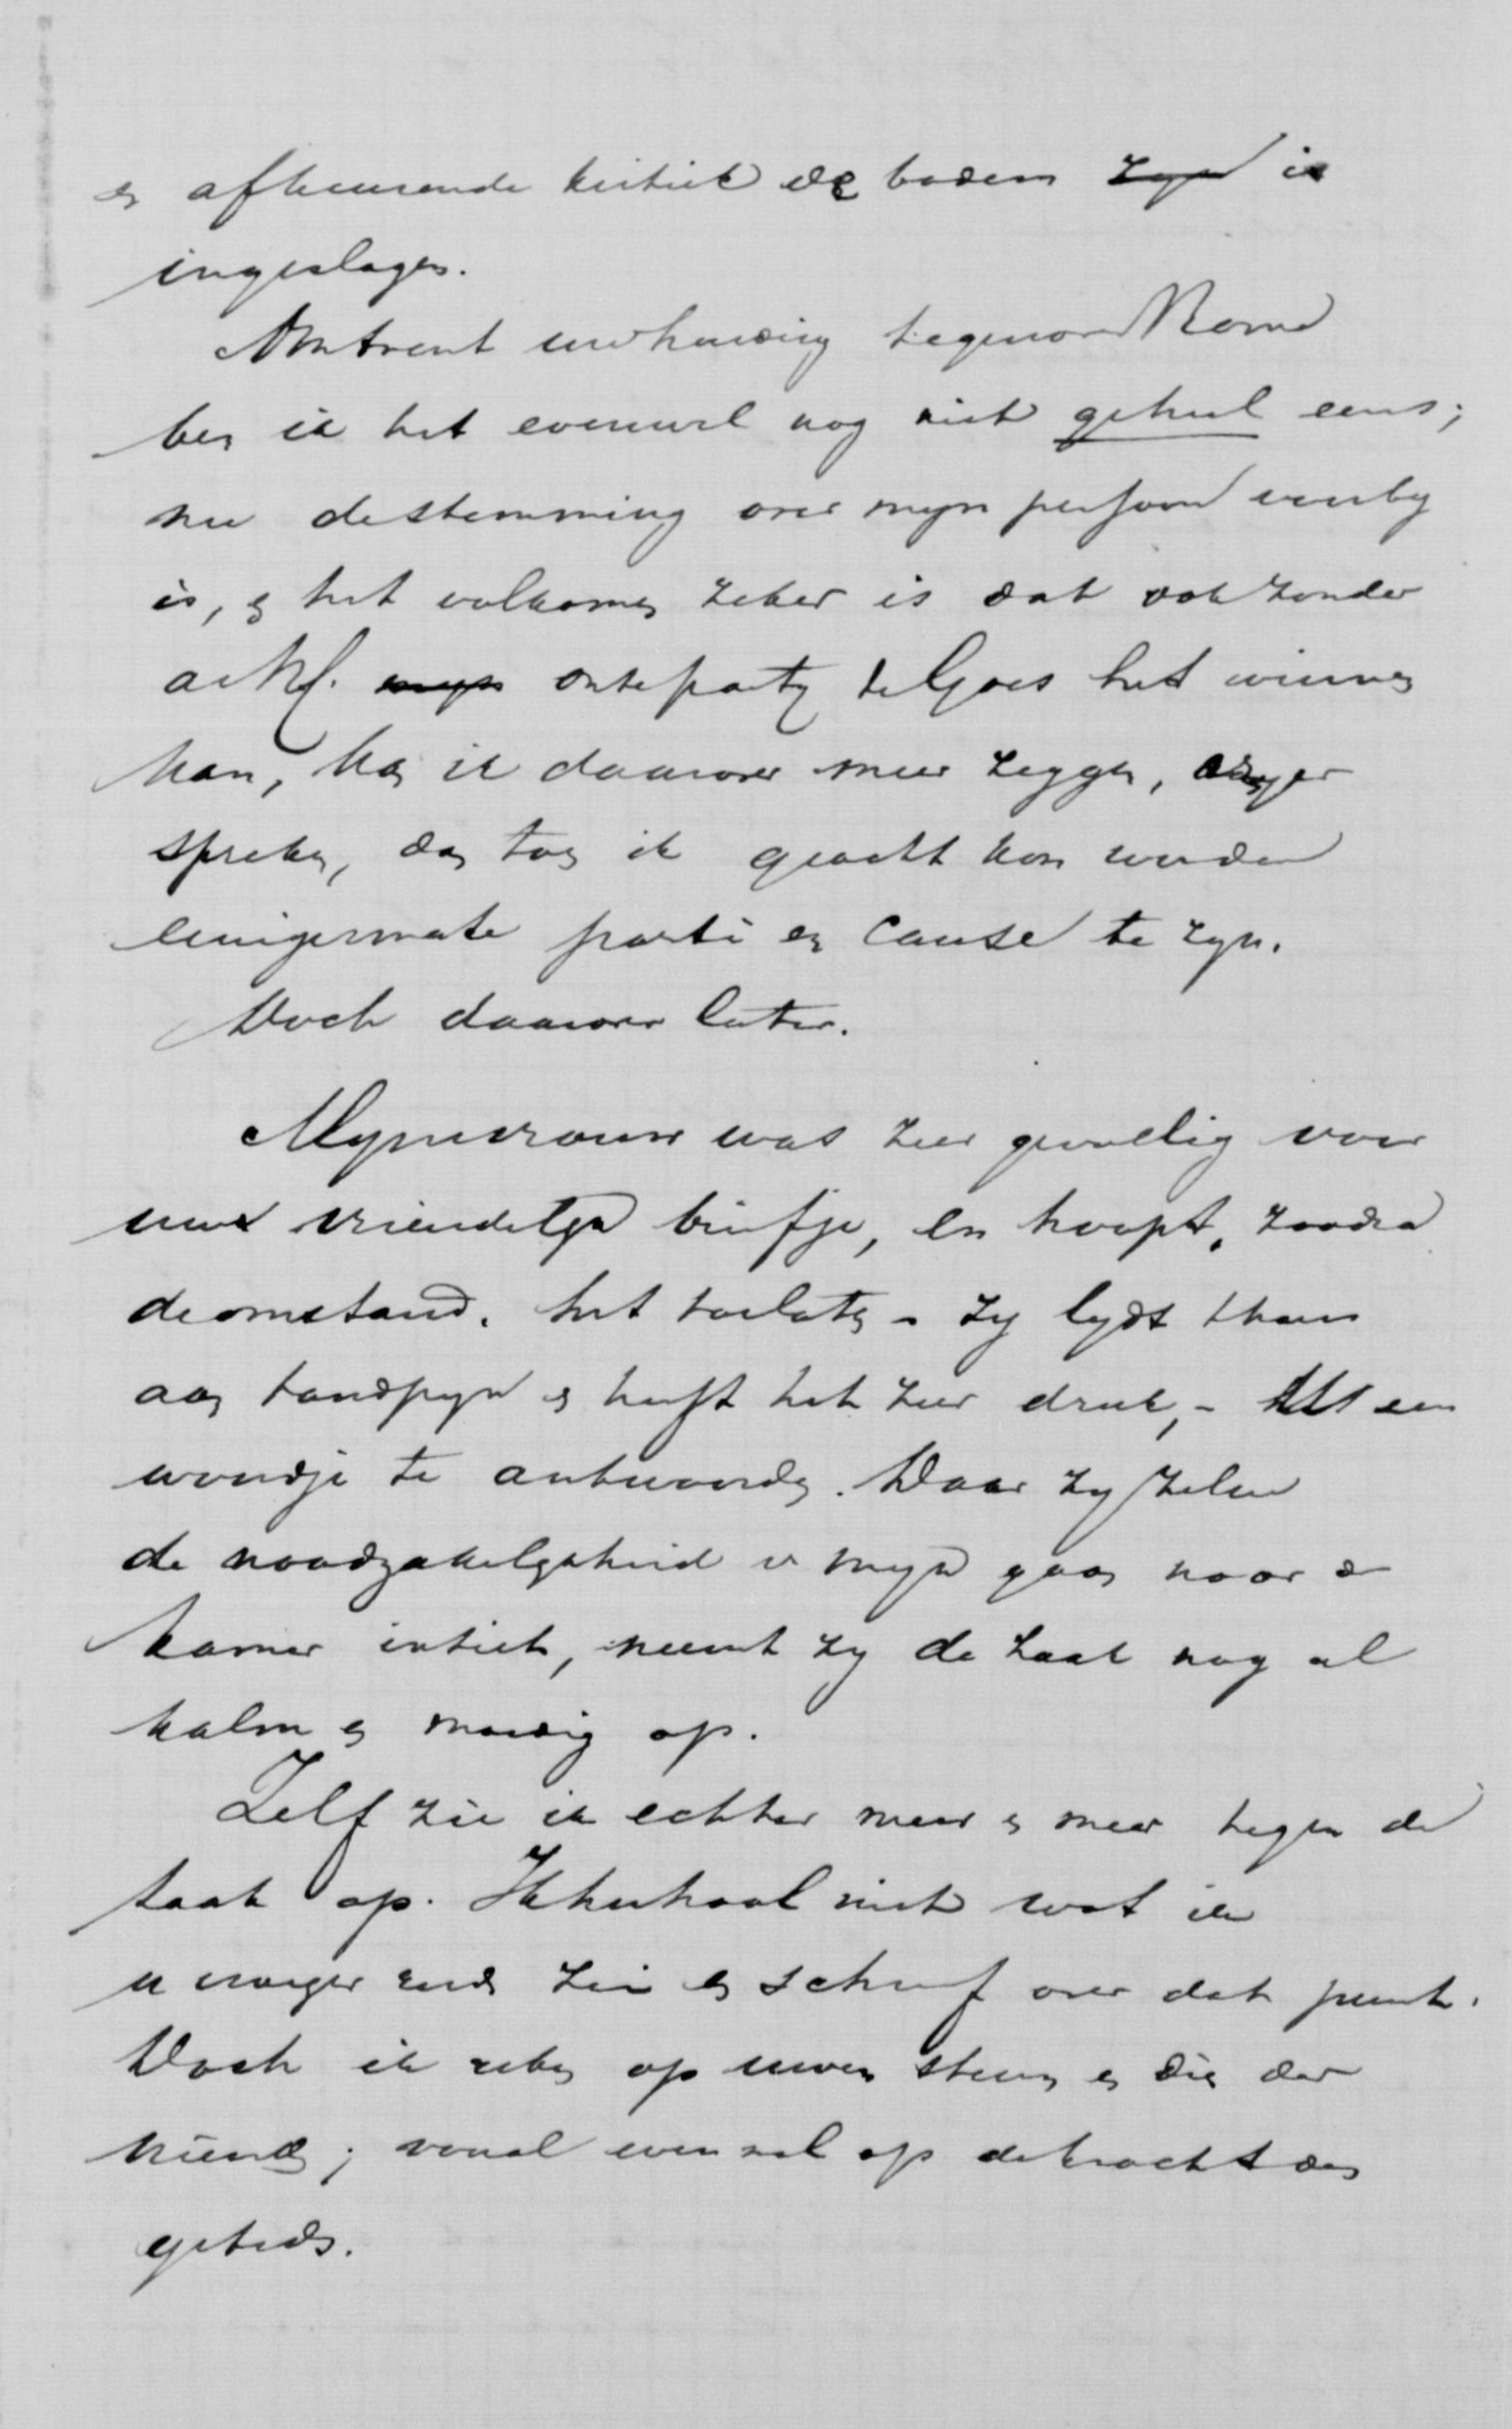 en afkeurende kritiek de bodem zyn is
ingeslagen.
Omtrent uw houding tegenover Rome
ben ik het evenwel nog niet geheel eens;
nu de stemming over myn persoon voorby
is, en het volkomen zeker is dat ook zonder
onze party te Goes het winnen
kan, kan ik daarover meer zeggen,
spreken, dan toen ik geacht kon worden
eenigermate parti en cause te zyn.
Doch daarover later.
Myn vrouw was zeer gevoelig voor
uw vriendelyk briefje, en hoopt, zoodra
de omstand. het toelaten - zy lydt thans
aan tandpyn en heeft het zeer druk, - een
woordje te antwoorden. Daar zy zelve
de noodzakelykheid v myn gaan naar de
kamer inziet, neemt zy de zaak nog al
kalm en moedig op.
Zelf zie ik echter meer en meer tegen de
taak op. Ik herhaal niet wat ik
u vroeger reeds zei en schreef over dat punt.
Doch ik reken op uwen steun en die der
vriend; vooral even wel op de kracht des
gebeds.